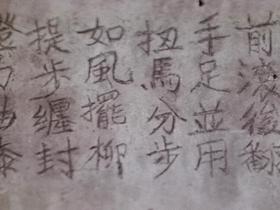 前滾後翻
手足並用
扭馬分步
如風擺柳
提步纏封